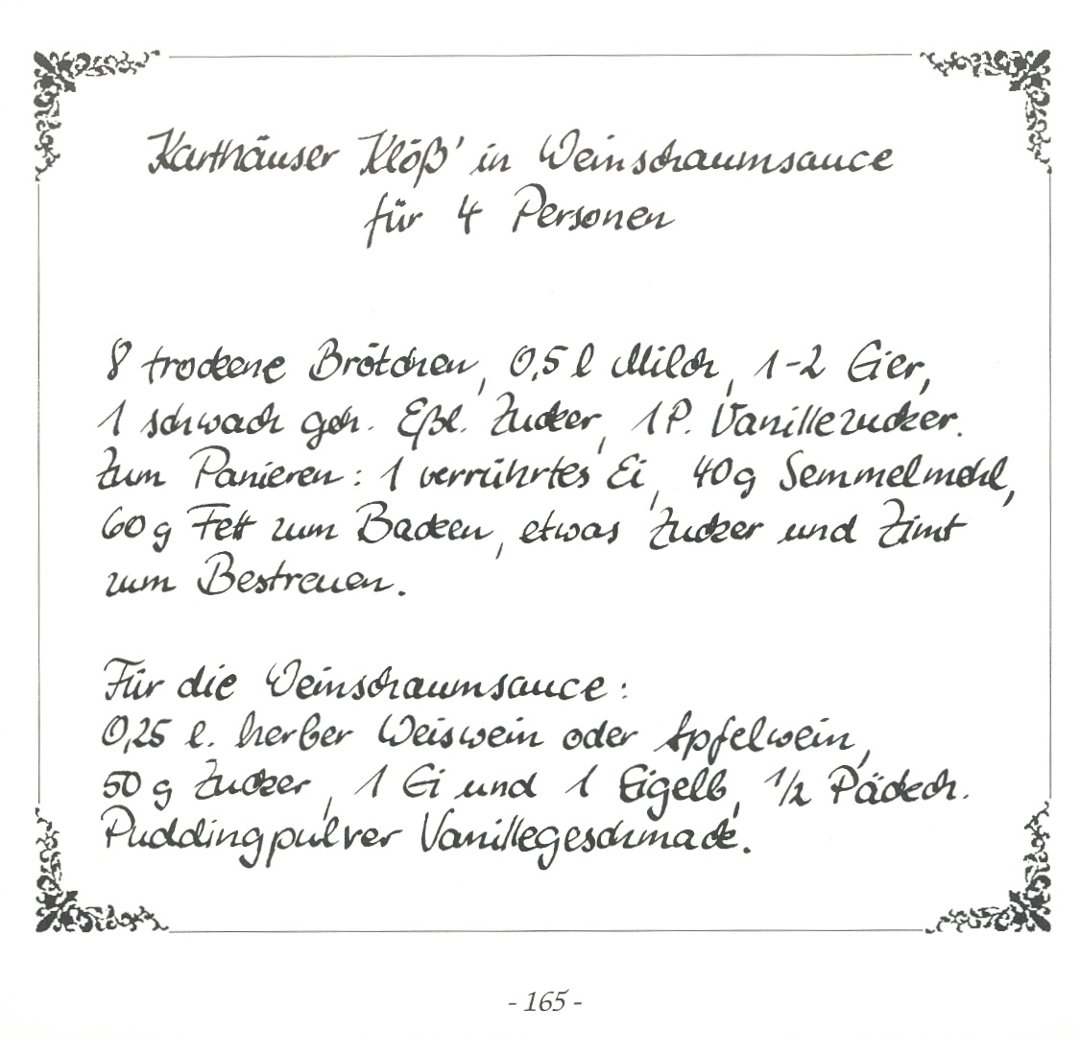 Karthäuser Klöß' in Weinschaumsauce
für 4 Personen
8 trockene Brötchen, 0,5 l Milch, 1-2 Eier,
1 schwach geh. Eßl. Zucker, 1 P. Vanillezucker.
Zum Panieren: 1 verrührtes Ei, 40g Semmelmehl,
60g Fett zum Backen, etwas Zucker und Zimt
zum Bestreuen.
Für die Weinschaumsauce:
0,25 l. herber Weiswein oder Apfelwein,
50 g Zucker, 1 Ei und 1 Eigelb, 1/2 Päckch.
Puddingpulver Vanillegeschmack.
- 165 -